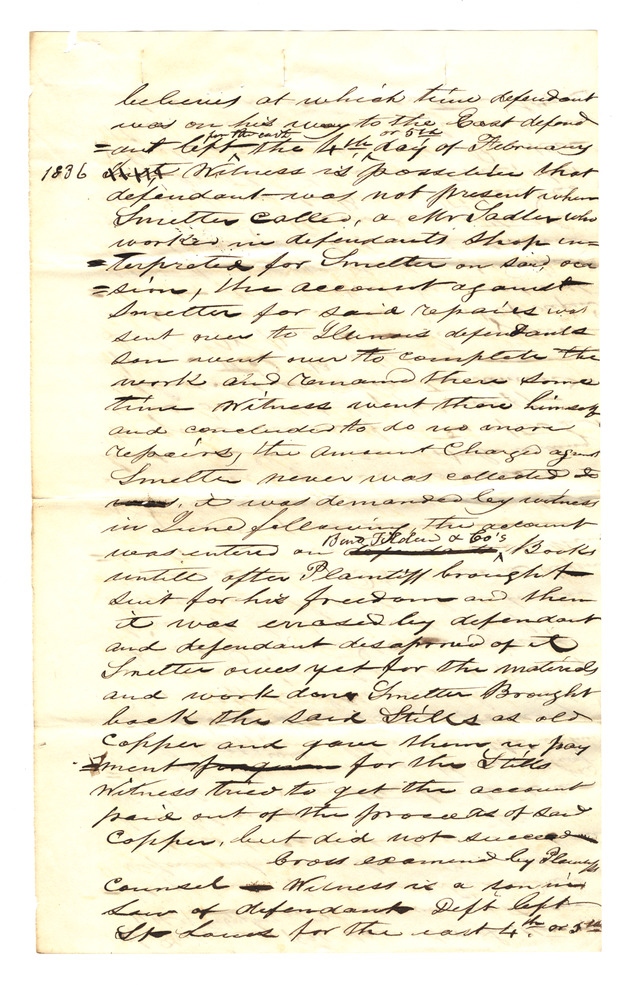 believes at which time defendant
was on his way to the East defend
=ant left for the east the 4th or 5th day of February
1836 Witness is possitive that
defendant was not present when
Smelter called, a Mr Sadler who
worked in defendants Shop in=
=terpreted for Smelter on said occa
=sion, the account against
Smelter for said repairs was
sent over to Illinois defendants
son went over to complete the
work and remained there some
time Witness went there himself
and concluded to do no more
repairs, the amount Charged against
Smelter never was collected
it was demanded by witness
in June following, the account
was entered on Tilden & Co's Books
untill after Plaintiff brought
suit for his freedom and then
it was erased by defendant
and defendant disaproved of it
Smelter owes yet for the materials
and work done Smelter Brought
back the said Stills as old
Copper and gave them in pay
=ment for the Stills
Witness tried to get the account
paid out of the proceeds of said
Copper, but did not succeed
Cross examined by Plaintiffs
Counsel Witness is a son in
Law of defendant Deft left
St Louis for the east 4th or 5th